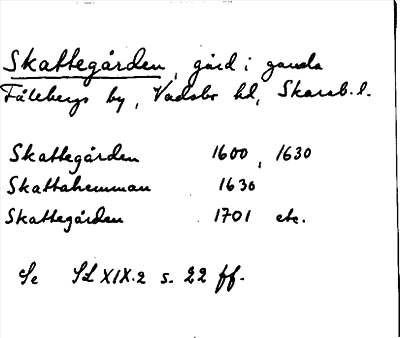 Skattegården, gård i gamla
Fåleberg by, Vadsbo hd, Skarab. l.
Skattegården 1600, 1630
Skattahemman 1630
Skattegården 1701 etc.
Se SL XIX.2 s. 22 ff.